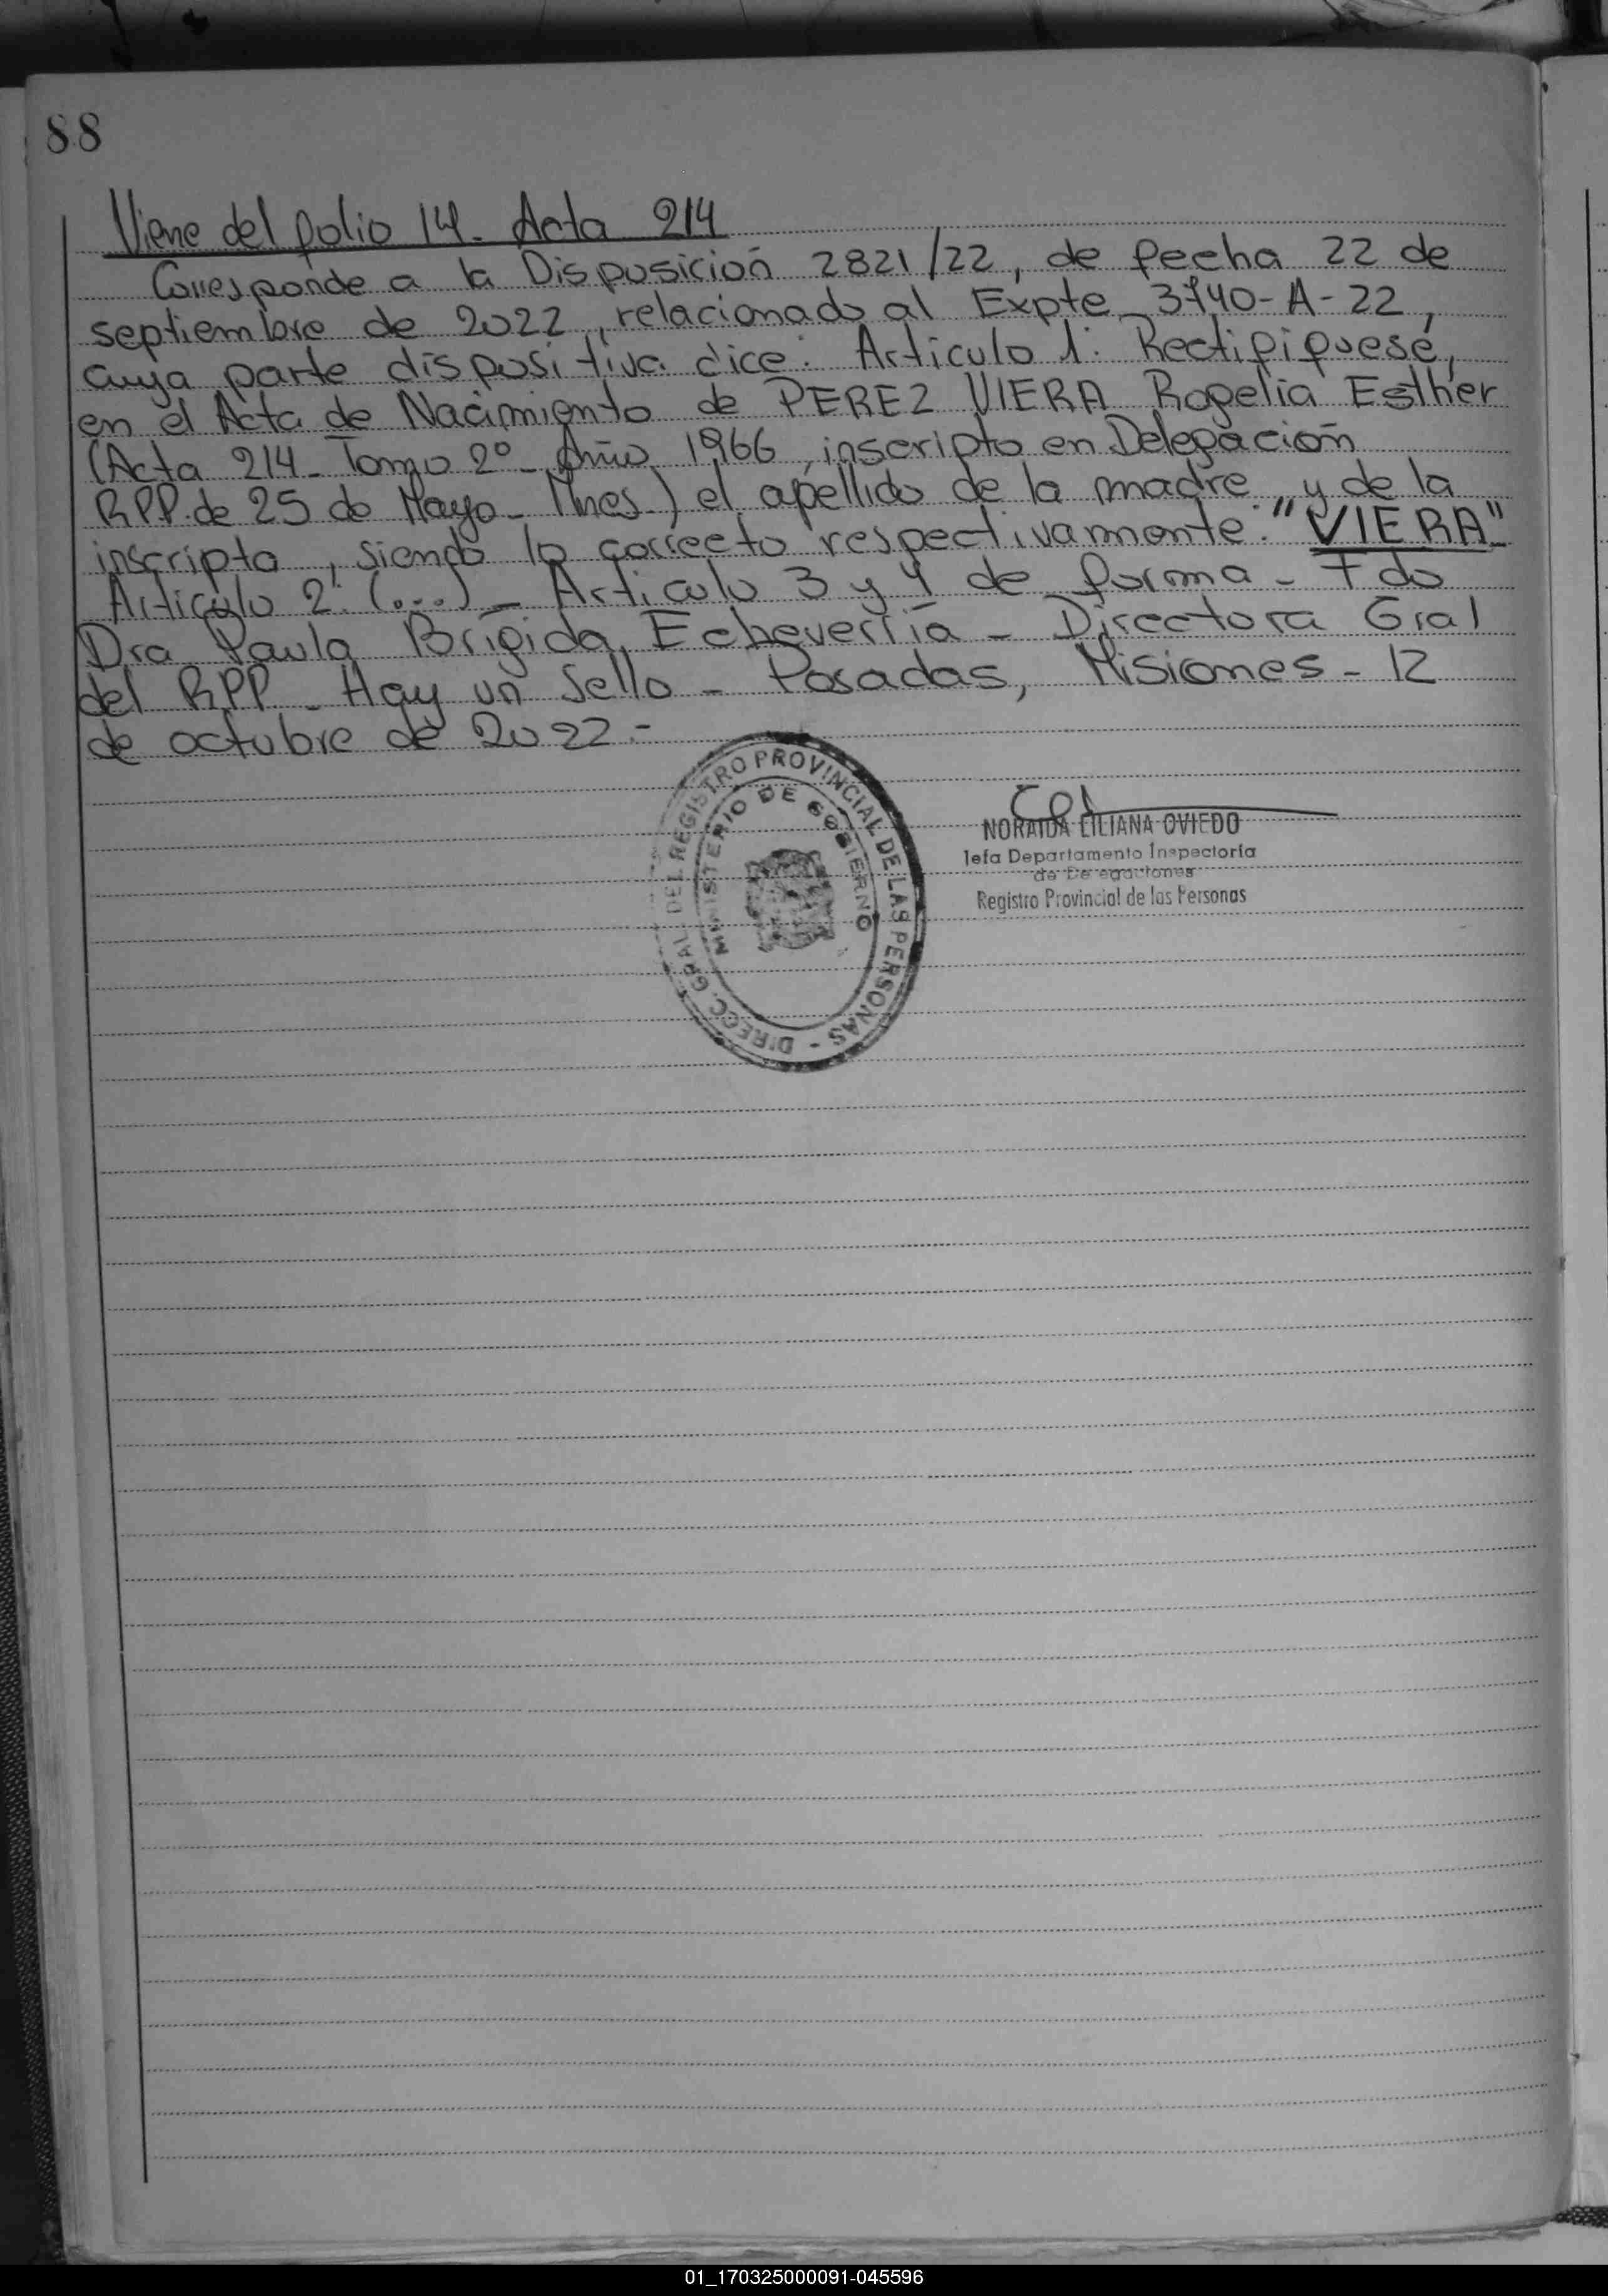 88
Viene del folio 14. Acta 214
Corresponde a la Disposición 2821/22, de fecha 22 de
septiembre de 2022, relacionado al Expte 3740-A-22,
cuya parte dispositiva dice: Artículo 1: Rectifiquesé,
en el Acta de Nacimiento de PEREZ VIERA Rogelia Esther
(Acta 214 - Tomo 2° - Año 1966, inscripto en Delegación
RPP. de 25 de Mayo - Mnes.) el apellido de la madre y de la
inscripta, siendo lo correcto respectivamente: "VIERA"
Artículo 2: (...) - Artículo 3 y 4 de forma - Fdo
Dra Paula Brígida Echeverría - Directora Gral
del RPP - Hay un sello - Posadas, Misiones - 12
de octubre de 2022.-
DIRECC. GRAL. DEL REGISTRO PROVINCIAL DE LAS PERSONAS -
MINISTERIO DE GOBIERNO
NORAIDA LILIANA OVIEDO
Jefa Departamento Inspectoría
de Delegaciones
Registro Provincial de las Personas
01_170325000091-045596